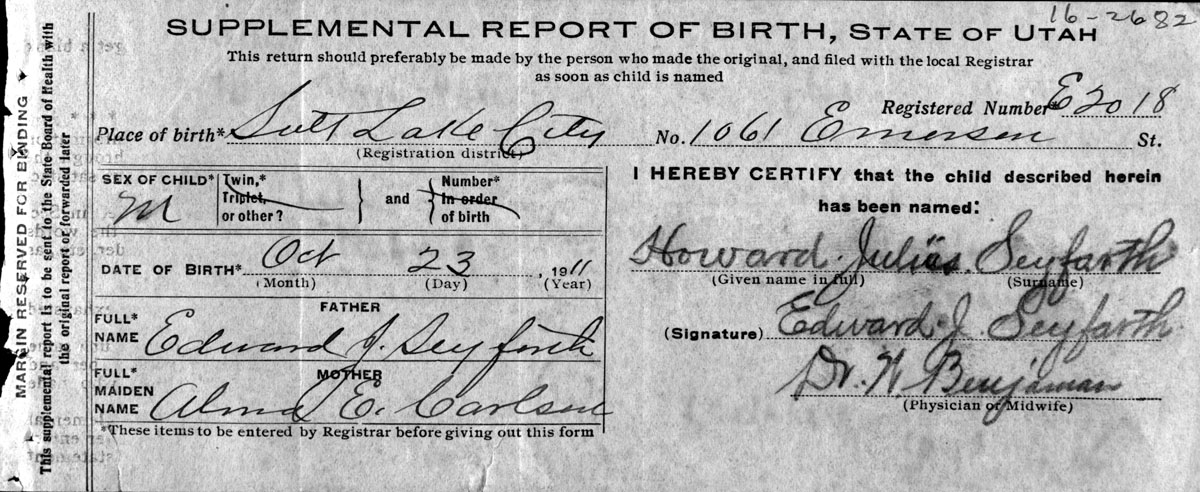 16-2682
SUPPLEMENTAL REPORT OF BIRTH, STATE OF UTAH
This return should preferably be made by the person who made the original, and filed with the local Registrar
as soon as child is named
Registered Number* E2018
Place of birth* Salt Lake City No. 1061 Emerson St.
(Registration district)
SEX OF CHILD* M
Twin,*
Triplet,
or other?
and
Number*
in order
of birth
DATE OF BIRTH* Oct 23, 1911
(Month) (Day) (Year)
FATHER
FULL*
NAME Edward J. Seyforth
MOTHER
FULL*
MAIDEN
NAME Alma E. Carlson
*These items to be entered by Registrar before giving out this form
I HEREBY CERTIFY that the child described herein
has been named:
Howard Julius Seyfarth
(Given name in full) (Surname)
(Signature) Edward J. Seyfarth
Dr. H. Benjaman
(Physician or Midwife)
MARGIN RESERVED FOR BINDING
This supplemental report is to be sent to the State Board of Health with
the original report or forwarded later